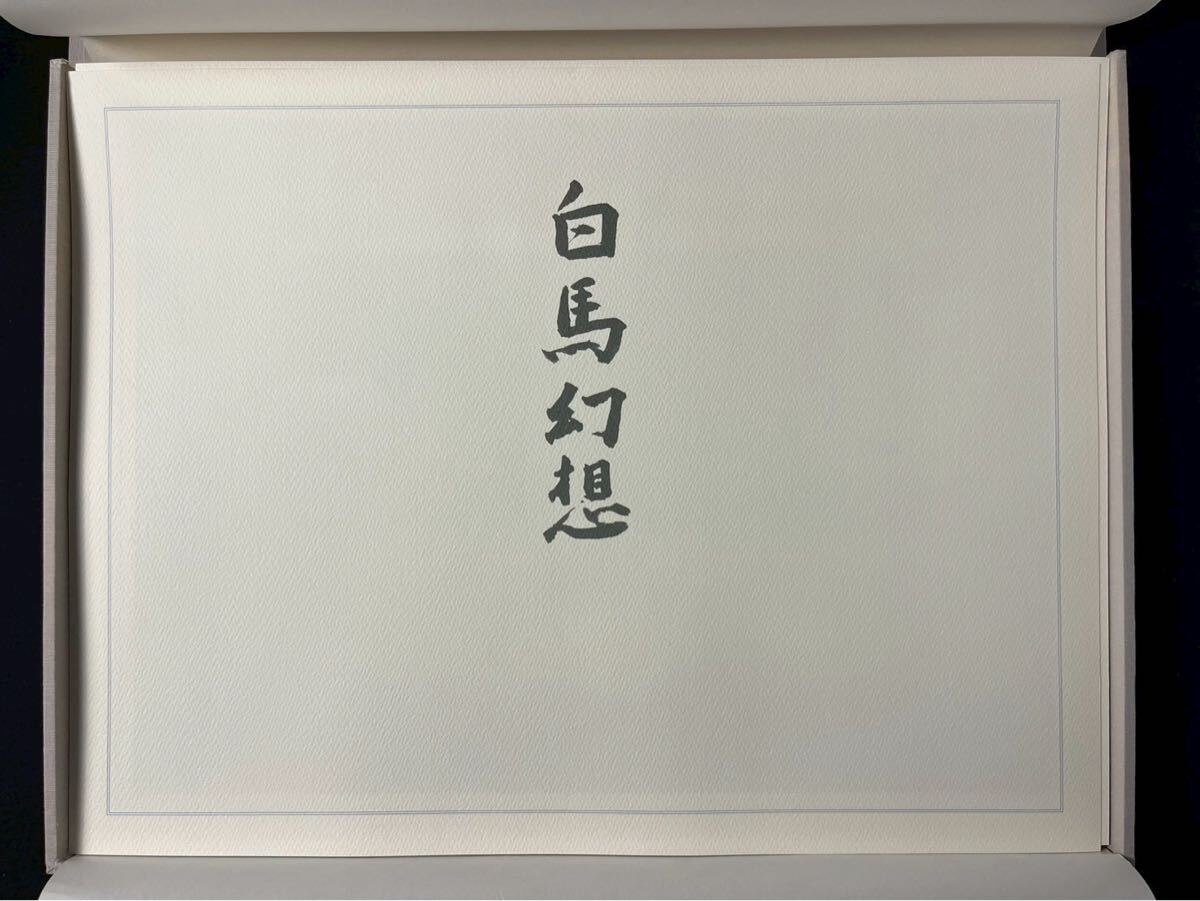 白馬幻想